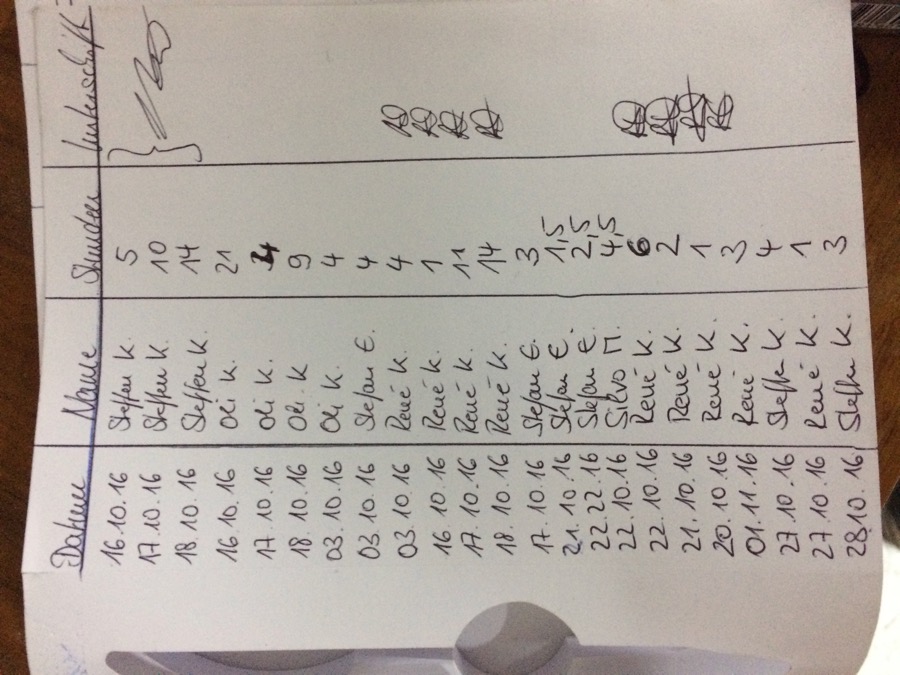 Datum Name Stunden Unterschrift
16.10.16 Steffen K. 5
17.10.16 Steffen K. 10
18.10.16 Steffen K. 14
16.10.16 Oli K. 21
17.10.16 Oli K.
18.10.16 Oli. K 9
03.10.16 Oli K. 4
03.10.16 Stefan E. 4
03.10.16 René K. 4
16.10.16 René K. 1
17.10.16 René K. 11
18.10.16 René K. 14
17.10.16 Stefan E. 3
21.10.16 Stefan E. 1,5
22.22.16 Stefan E. 2,5
22.10.16 Silvo M. 4,5
22.10.16 René K. 6
21.10.16 René K. 2
20.10.16 René K. 1
01.11.16 René K. 3
27.10.16 Steffen K. 4
27.10.16 René K. 1
28.10.16 Steffen K. 3